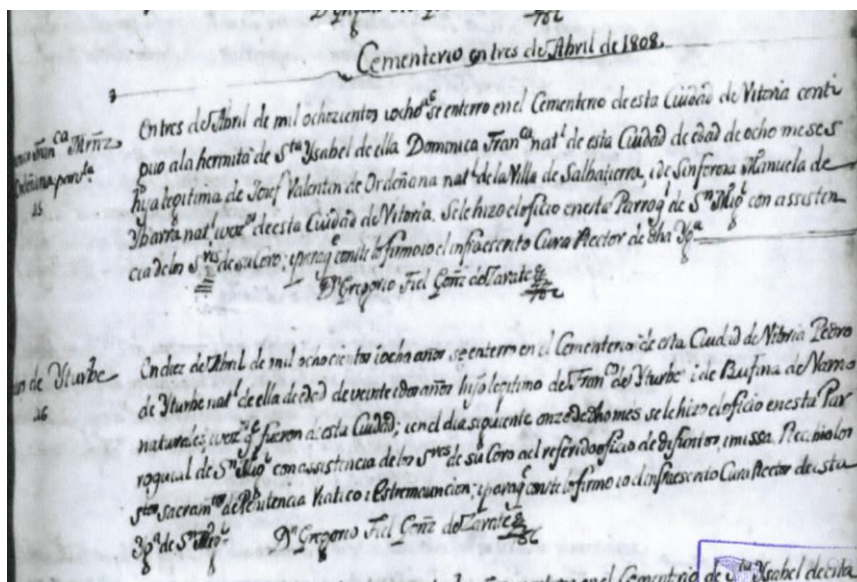 Cementerio en tres de Abril de 1808.
En tres de Abril de mil ochozientos iocho se enterro en el Cementerio de esta Ciudad de Vitoria conti
guo a la hermita de Sta Ysabel de ella Domonica Franca natl de esta Ciudad de edad de ocho meses
hija legitima de Josef Valentin de Ordeñana natl de la Villa de Salbatierra, i de Sinforosa Manuela de
Ybarra natl i vozna de esta Ciudad de Vitoria. Se le hizo el oficio en esta Parroql de Sn Migl con assisten
cia de los Sres de su Coro; i para qe conste lo firmo io el infraescrito Cura Rector de dha Yga
Dn Gregorio Fiel Gonz de Zarate
Ordeñana parvla
15
En diez de Abril de mil ochocientos iocho años se enterro en el Cementerio de esta Ciudad de Vitoria Pedro
de Yturbe natl de ella de edad de veinte idos años hijo legitimo de Franco de Yturbe i de Rufina de
naturales, i vozs qe fueron de esta Ciudad; i en el dia siguiente onze de dho mes se le hizo el oficio en esta Par
roquial de Sn Migl con assistencia de los Sres de su Coro al referido oficio de difuntos, i missa. Recibio los
stos sacramtos de Penitencia Viatico i Estremauncion; i para qe conste lo firmo io el infraescrito Cura Rector de esta
Yga de Sn Migl.
Dn Gregorio Fiel Gonz de Zarate
de Yturbe
16
en el Cementerio de Sta Ysabel de esta